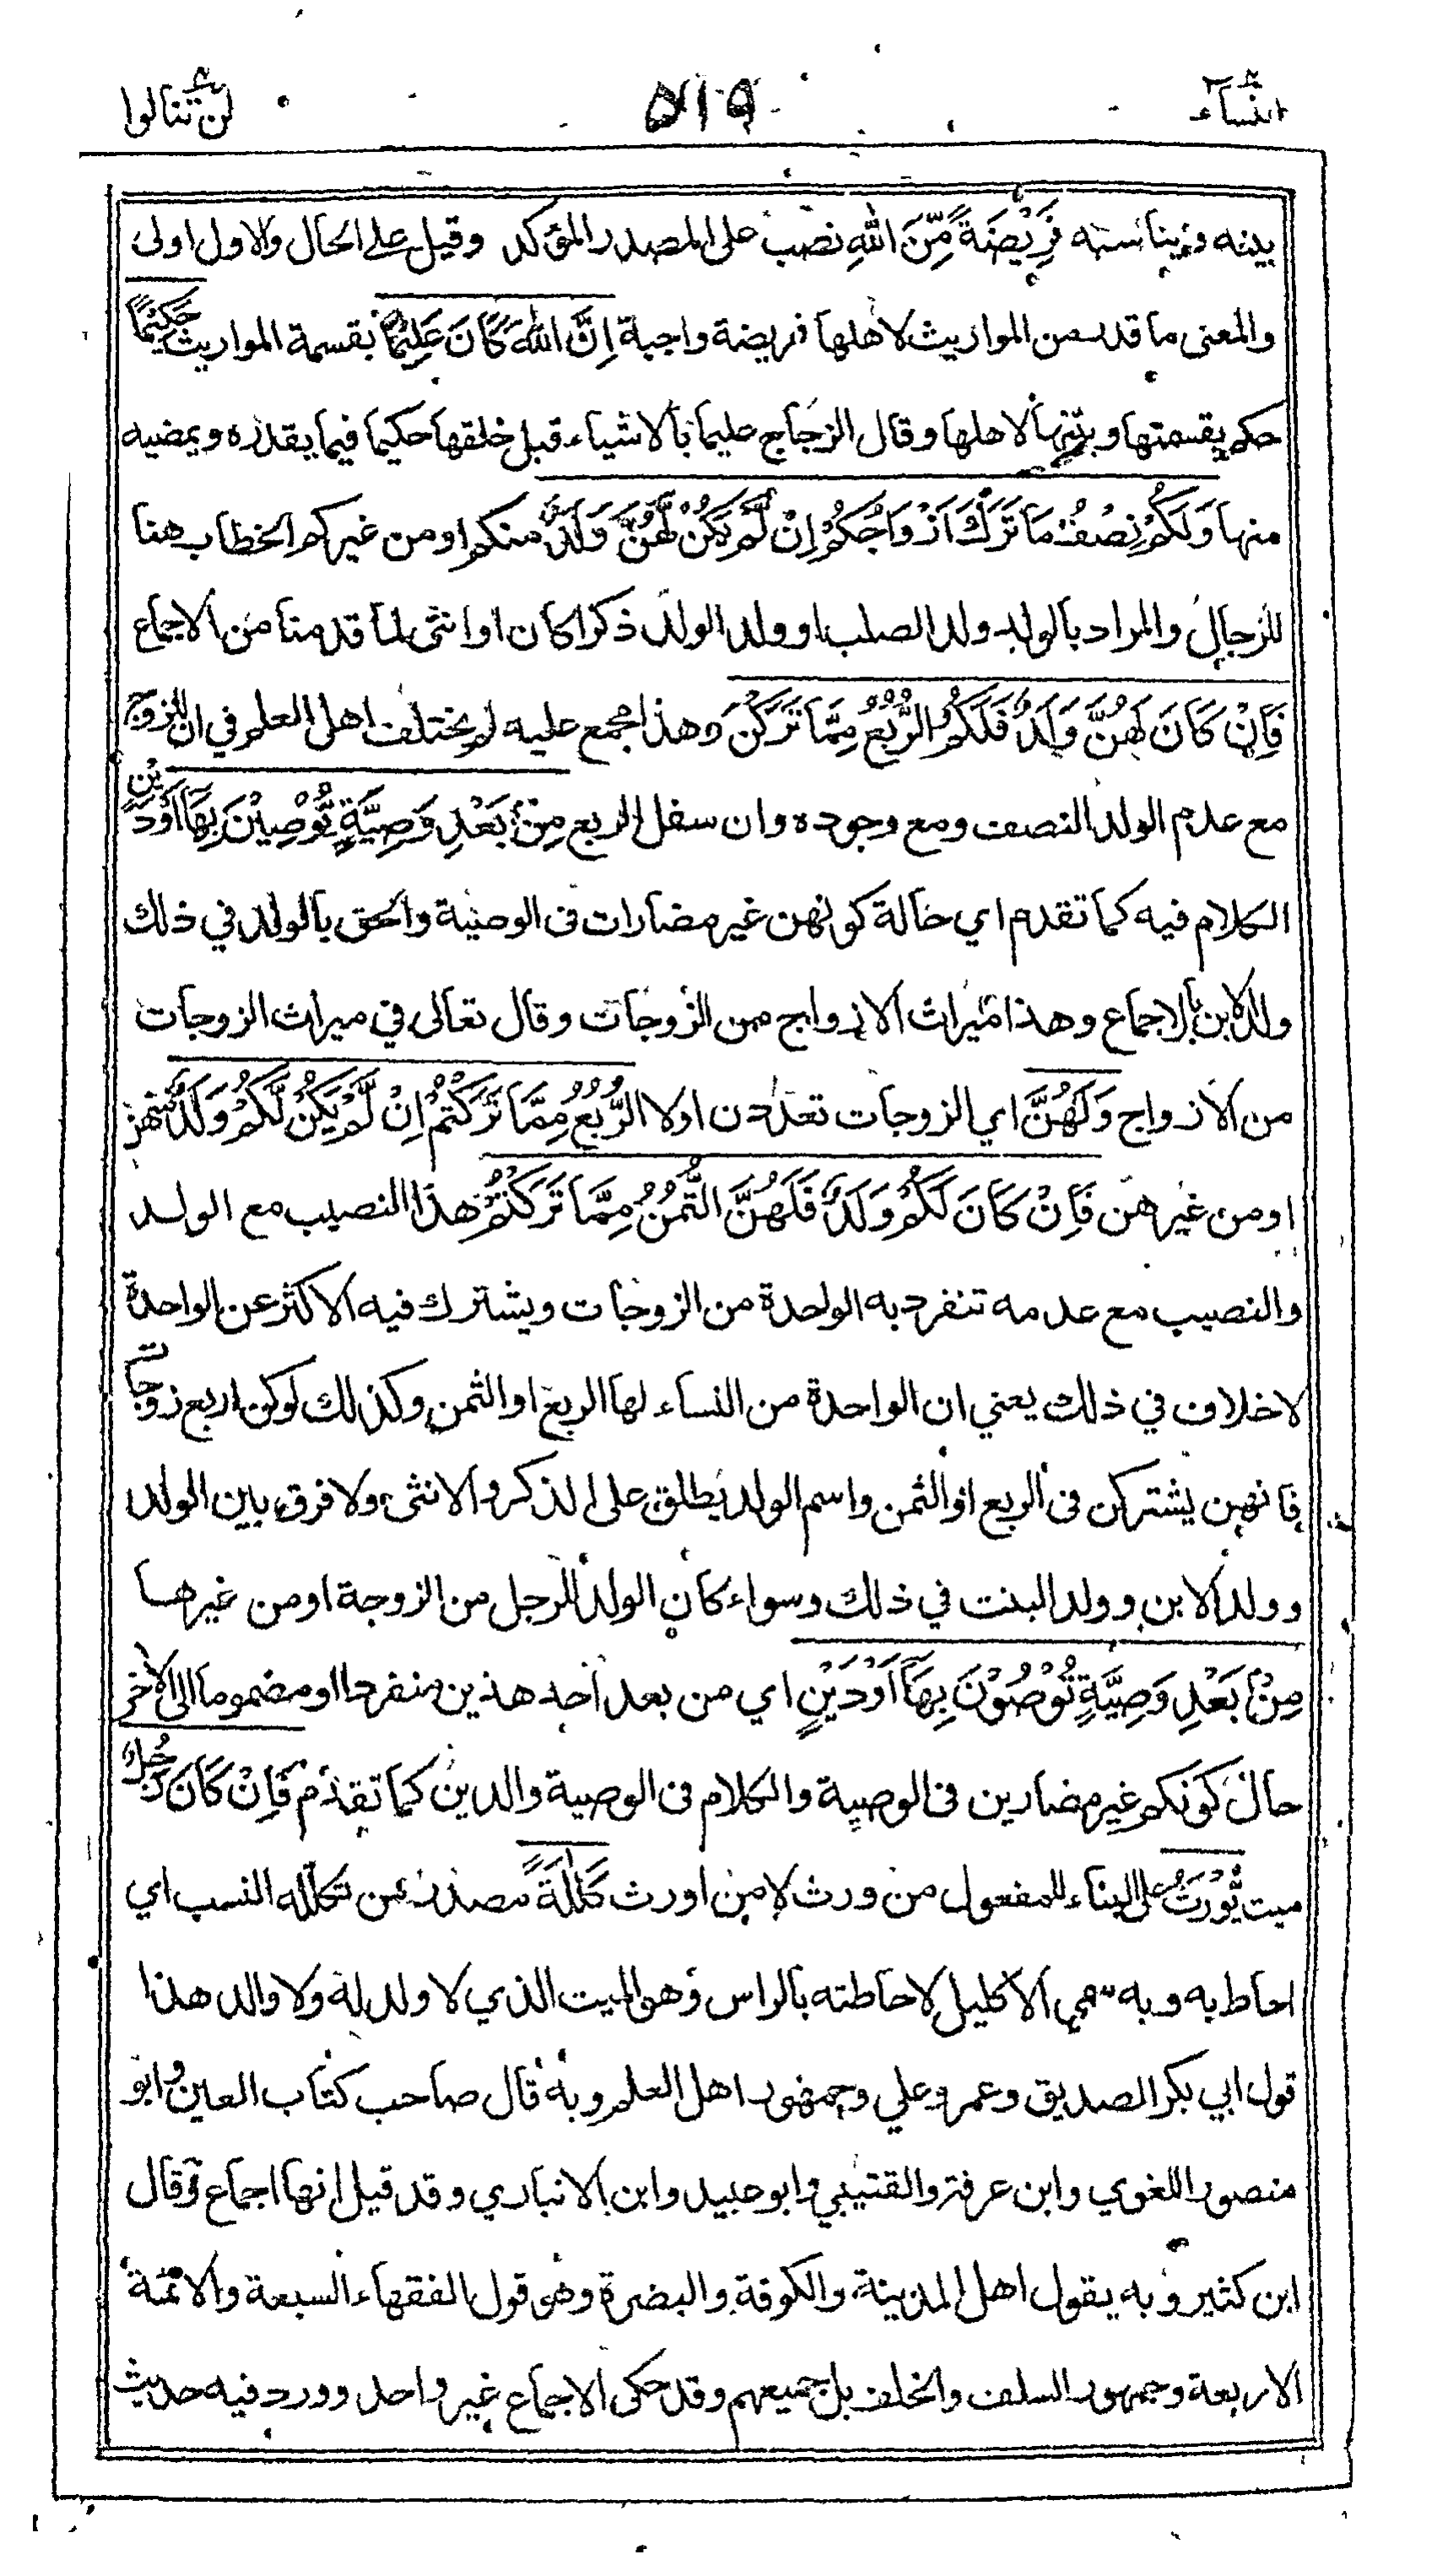 النساء ٤
٥١٩
لن تنالوا ٤
بينه وزيناسته فَرِيْضَةً مِّنَ اللّٰهِ نصب على المصدر المؤكد وقيل على الحال والاول اولى
والمعنى ما قدر من المواريث لاهلها فريضة واجبة اِنَّ اللّٰهَ كَانَ عَلِيْمًا بقسمة المواريث حَكِيْمًا
حكم بقسمتها وبيّنها لاهلها وقال الزجاج عليما بالاشياء قبل خلقها حكيما فيما يقدره ويمضيه
منها وَلَكُمْ نِصْفُ مَا تَرَكَ اَزْوَاجُكُمْ اِنْ لَّمْ يَكُنْ لَّهُنَّ وَلَدٌ منكم او من غيركم الخطاب هنا
للرجال والمراد بالولد ولد الصلب او ولد الولد ذكرا كان او انثى لما قدمنا من الاجماع
فَاِنْ كَانَ لَهُنَّ وَلَدٌ فَلَكُمُ الرُّبُعُ مِمَّا تَرَكْنَ وهذا مجمع عليه لم يختلف اهل العلم في ان للزوج
مع عدم الولد النصف ومع وجوده وان سفل الربع مِنْۢ بَعْدِ وَصِيَّةٍ يُّوْصِيْنَ بِهَآ اَوْ دَيْنٍ
الكلام فيه كما تقدم اي حالة كونهن غير مضارات فى الوصية والحق بالولد في ذلك
ولد الابن بالاجماع وهذا ميراث الازواج من الزوجات وقال تعالى في ميراث الزوجات
من الازواج وَلَهُنَّ اي الزوجات تعددن اولا الرُّبُعُ مِمَّا تَرَكْتُمْ اِنْ لَّمْ يَكُنْ لَّكُمْ وَلَدٌ منهن
او من غيرهن فَاِنْ كَانَ لَكُمْ وَلَدٌ فَلَهُنَّ الثُّمُنُ مِمَّا تَرَكْتُمْ هذا النصيب مع الولد
والنصيب مع عدمه تنفرد به الواحدة من الزوجات ويشترك فيه الاكثر عن الواحدة
لاخلاف في ذلك يعني ان الواحدة من النساء لها الربع او الثمن وكذلك لوكن اربع زوجات
فانهن يشتركن فى الربع او الثمن واسم الولد يطلق على الذكر والانثى ولا فرق بين الولد
وولد الابن وولد البنت في ذلك وسواء كان الولد للرجل من الزوجة او من غيرها
مِنْۢ بَعْدِ وَصِيَّةٍ تُوْصُوْنَ بِهَآ اَوْ دَيْنٍ اي من بعد احد هذين منفردا او مضموما الى الاخر
حال كونكم غير مضارين فى الوصية والكلام فى الوصية والدين كما تقدم فَاِنْ كَانَ رَجُلٌ
ميت يُّوْرَثُ على البناء للمفعول من ورث لا من اورث كَلٰلَةً مصدر من تكلله النسب اي
احاط به وبه سمي الاكليل لاحاطته بالراس وهو الميت الذي لا ولد له ولا والد هذا
قول ابي بكر الصديق وعمر وعلي وجمهور اهل العلم وبه قال صاحب كتاب العين وابو
منصور اللغوي وابن عرفة والقتيبي وابو عبيد وابن الانباري وقد قيل انها اجماع وقال
ابن كثير وبه يقول اهل المدينة والكوفة والبصرة وهو قول الفقهاء السبعة والائمة
الاربعة وجمهور السلف والخلف بل جميعهم وقد حكى الاجماع غير واحد وورد فيه حديث